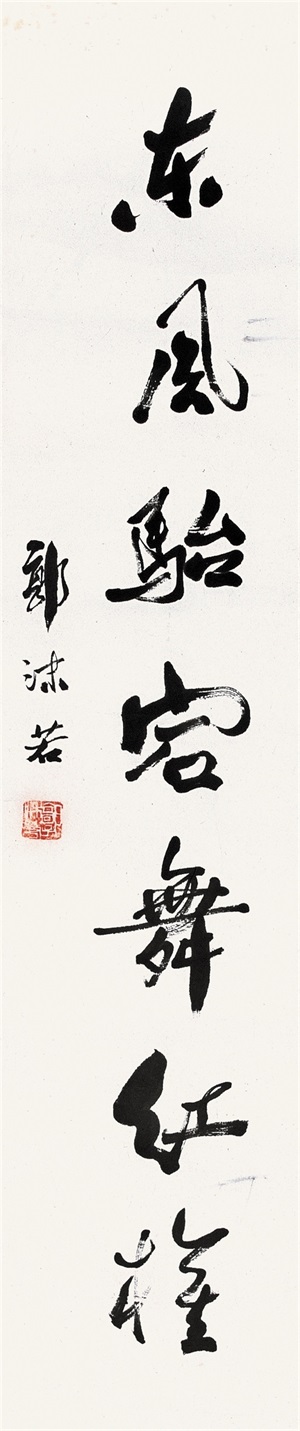 东風駘宕舞紅旌
郭沫若